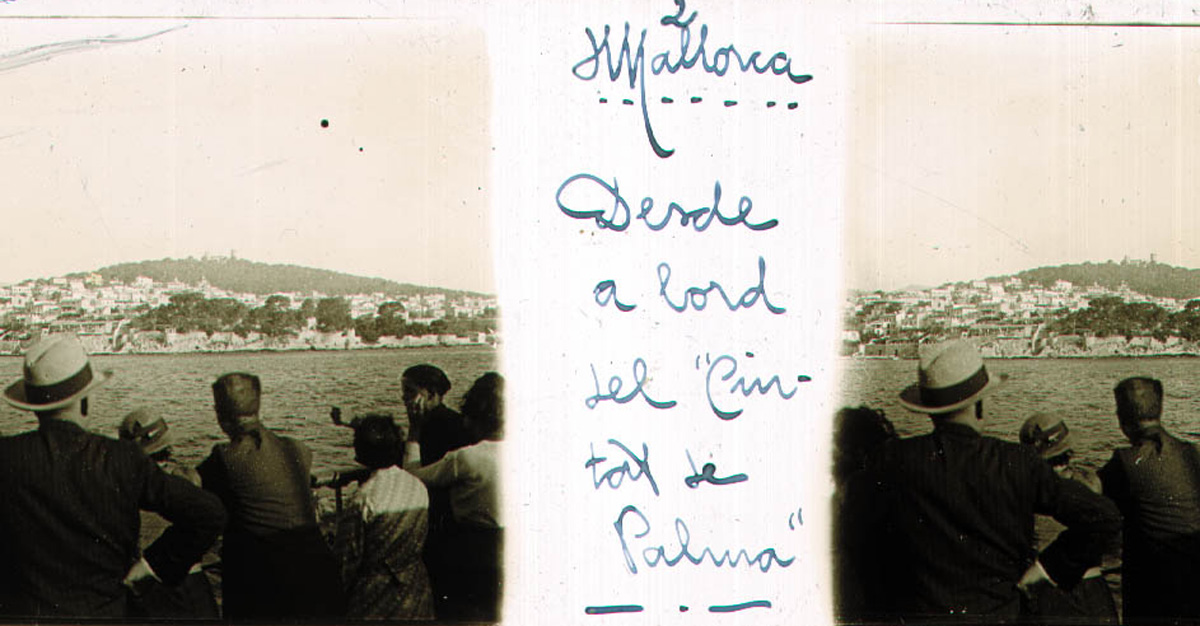 2
Mallorca
Desde
a bord
del "Ciu-
tat de
Palma"